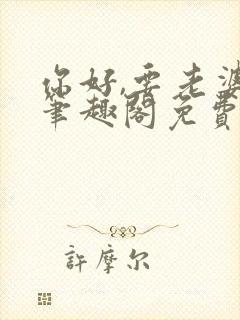 你好,要老婆
筆趣閣免費
許摩尔